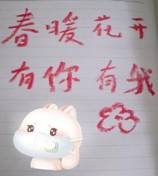 春暖花开
有你有我